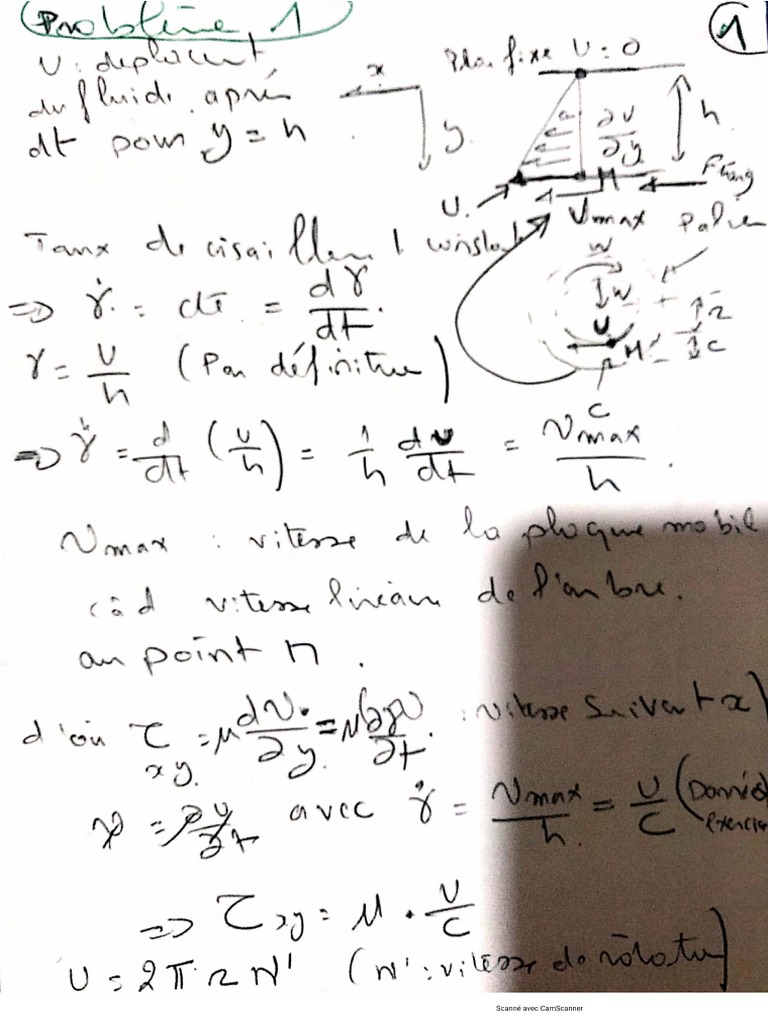 Problème 1
1
U : deplacent
du fluide après
dt pour y = h
x
y
Plan fixe U = 0
∂U/∂y
h
U
M
Vmax
Taux de cisaillement
W
U
M'
r
c
⇒ γ̇ = = dγ/dt
γ = U/h (Par définition)
⇒ γ̇ = d/dt (U/h) = 1/h dU/dt = Vmax/h
Vmax : vitesse de la plaque mobil
càd vitesse linéaire de l'arbre.
au point M.
d'où τxy = μ ∂v/∂y : vitesse suivant x)
avec γ̇ = Vmax/h = U/C
⇒ τxy = μ . U/C
U = 2π r N' (N' : vitesse de rotatu)
Scanné avec CamScanner